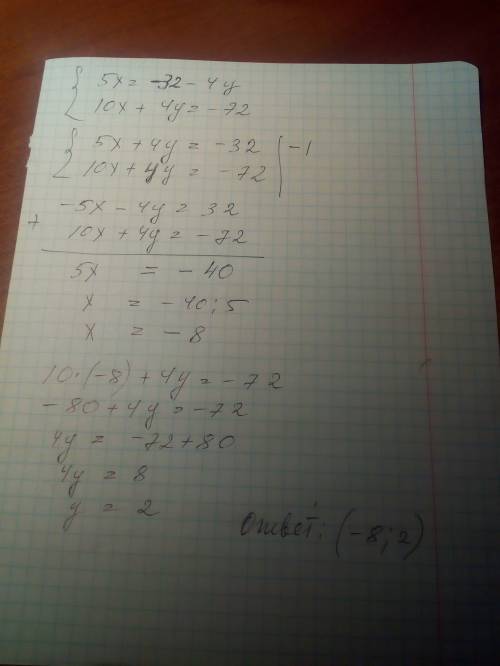 { 5x = -32 - 4y
10x + 4y = -72
{ 5x + 4y = -32 | -1
10x + 4y = -72
-5x - 4y = 32
+
10x + 4y = -72
5x = -40
x = -40 : 5
x = -8
10 · (-8) + 4y = -72
-80 + 4y = -72
4y = -72 + 80
4y = 8
y = 2
Ответ: (-8; 2)